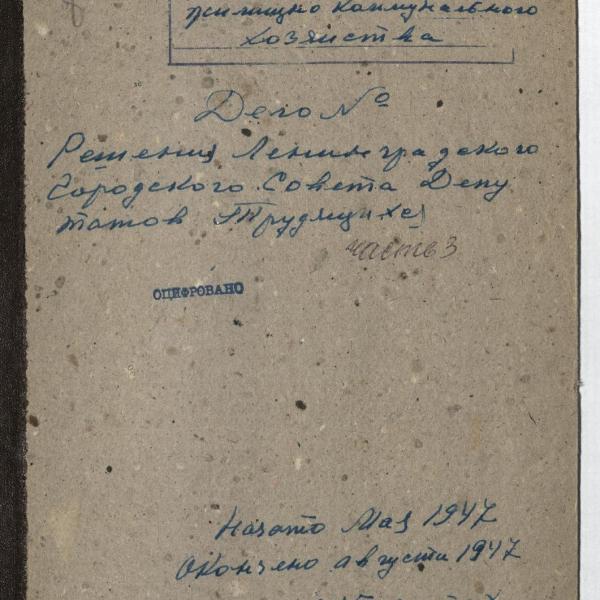 жилищно коммунального
хозяйства
Дело №
Решения Ленинградского
Городского Совета Депу
татов Трудящихся
часть 3
ОЦИФРОВАНО
Начато Мая 1947
Окончено августа 1947